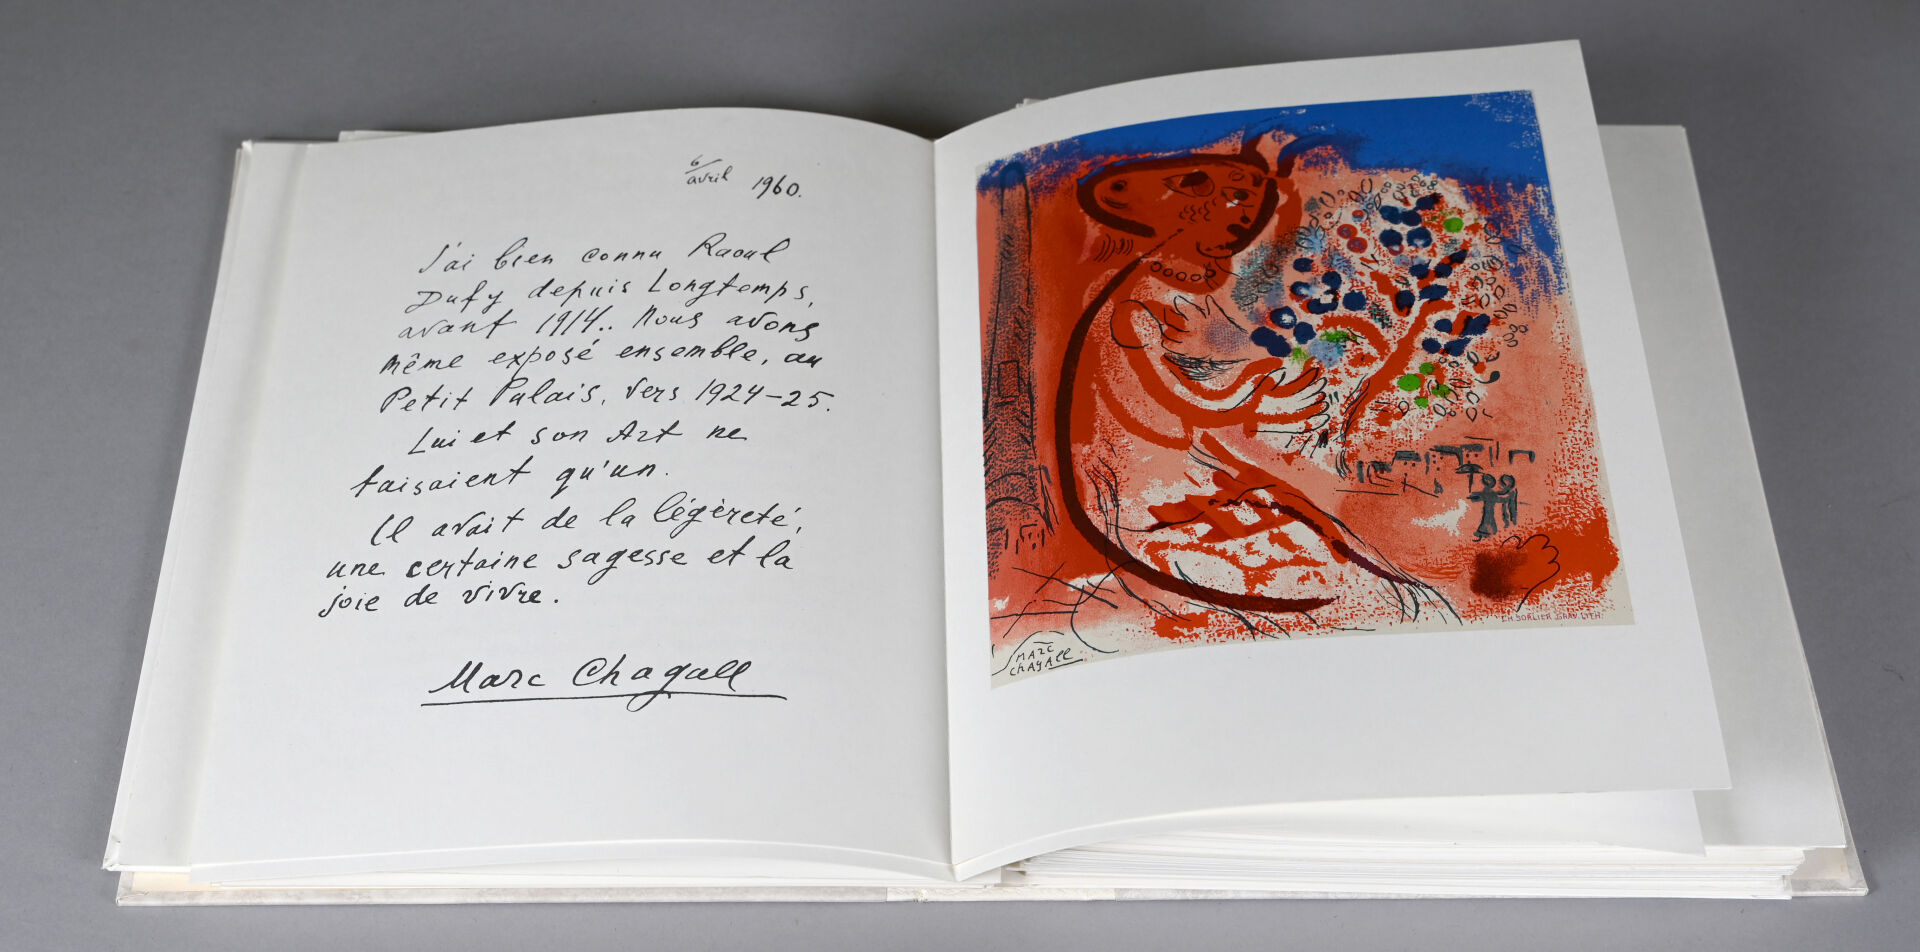 6/avril 1960.
J'ai bien connu Raoul
Dufy depuis Longtemps,
avant 1914.. Nous avons
même exposé ensemble, au
Petit Palais, vers 1924-25.
Lui et son Art ne
faisaient qu'un.
Il avait de la légèreté,
une certaine sagesse et la
joie de vivre.
Marc Chagall
CH. SORLIER GRAV. LITH.
MARC
CHAGAll